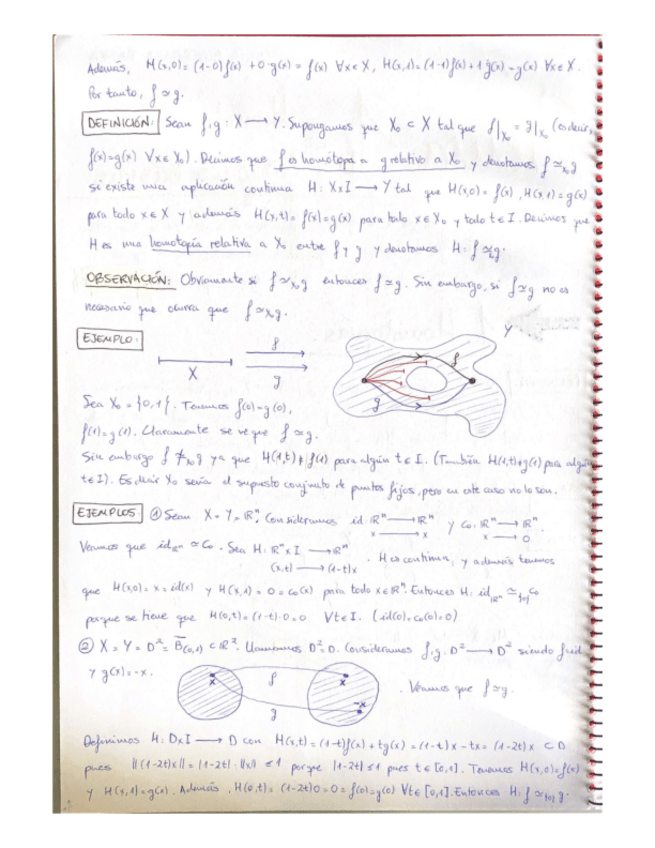 Además, H(x,0) = (1-0)f(x) + 0·g(x) = f(x) ∀x∈X, H(x,1) = (1-1)f(x) + 1·g(x) = g(x) ∀x∈X.
Por tanto, f ≃ g.
DEFINICIÓN: Sean f,g : X ⟶ Y. Supongamos que X₀ ⊂ X tal que f|X₀ = g|X₀ (es decir,
f(x)=g(x) ∀x∈X₀). Decimos que f es homótopa a g relativo a X₀ y denotamos f ≃X₀ g
si existe una aplicación continua H: X×I ⟶ Y tal que H(x,0) = f(x), H(x,1) = g(x)
para todo x∈X y además H(x,t) = f(x) = g(x) para todo x∈X₀ y todo t∈I. Decimos que
H es una homotopía relativa a X₀ entre f y g y denotamos H: f ≃X₀ g.
OBSERVACIÓN: Obviamente si f ≃X₀ g entonces f ≃ g. Sin embargo, si f ≃ g no es
necesario que ocurra que f ≃X₀ g.
EJEMPLO:
f
g
X
Y
f
g
Sea X₀ = {0,1}. Tenemos f(0)=g(0),
f(1)=g(1). Claramente se ve que f ≃ g.
Sin embargo f ≄X₀ g ya que H(1,t) ≠ f(1) para algún t∈I. (También H(1,t)≠g(1) para algún
t∈I). Es decir X₀ sería el supuesto conjunto de puntos fijos, pero en este caso no lo son.
EJEMPLOS: ① Sean X = Y = ℝⁿ. Consideramos id: ℝⁿ ⟶ ℝⁿ y c₀: ℝⁿ ⟶ ℝⁿ.
x ⟶ x x ⟶ 0
Veamos que idℝⁿ ≃ c₀. Sea H: ℝⁿ×I ⟶ ℝⁿ. H es continua, y además tenemos
(x,t) ⟶ (1-t)x
que H(x,0) = x = id(x) y H(x,1) = 0 = c₀(x) para todo x∈ℝⁿ. Entonces H: idℝⁿ ≃{0} c₀
porque se tiene que H(0,t) = (1-t)·0 = 0 ∀t∈I. (id(0)=c₀(0)=0)
② X = Y = D² = B̄(0,1) ⊂ ℝ². Llamamos D²=D. Consideramos f,g: D² ⟶ D² siendo f=id
y g(x) = -x.
x
f
g
x
-x
Veamos que f ≃ g.
Definimos H: D×I ⟶ D con H(x,t) = (1-t)f(x) + tg(x) = (1-t)x - tx = (1-2t)x ⊂ D
pues ||(1-2t)x|| = |1-2t|·||x|| ≤ 1 porque |1-2t| ≤ 1 pues t∈[0,1]. Tenemos H(x,0)=f(x)
y H(x,1)=g(x). Además, H(0,t) = (1-2t)0 = 0 = f(0)=g(0) ∀t∈[0,1]. Entonces H: f ≃{0} g.